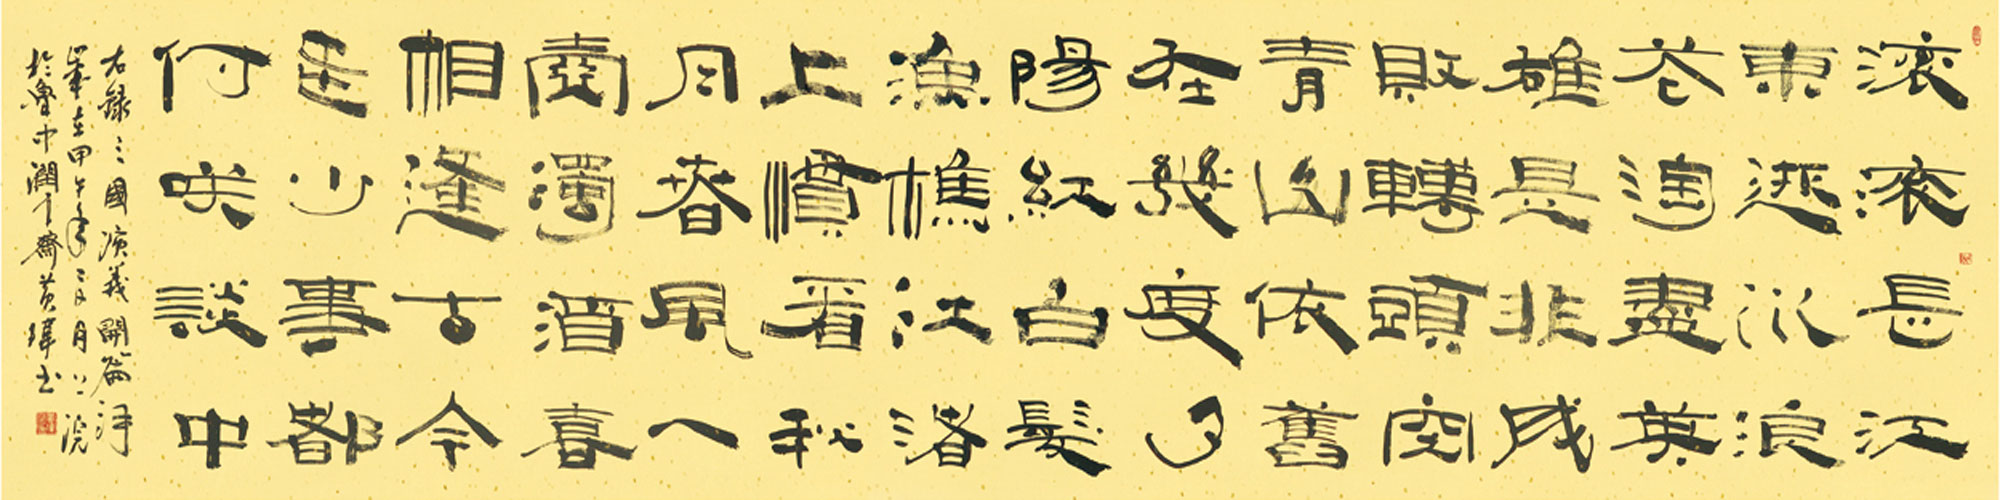 滚滚長江
東逝水浪
花淘盡英
雄是非成
敗轉頭空
青山依舊
在幾度夕
陽紅白髮
漁樵江渚
上慣看秋
月春風一
壺濁酒喜
相逢古今
多少事都
付咲談中
右録三國演義開篇詞
歲在甲午年月上浣
於魯中潤齋黄瑋書